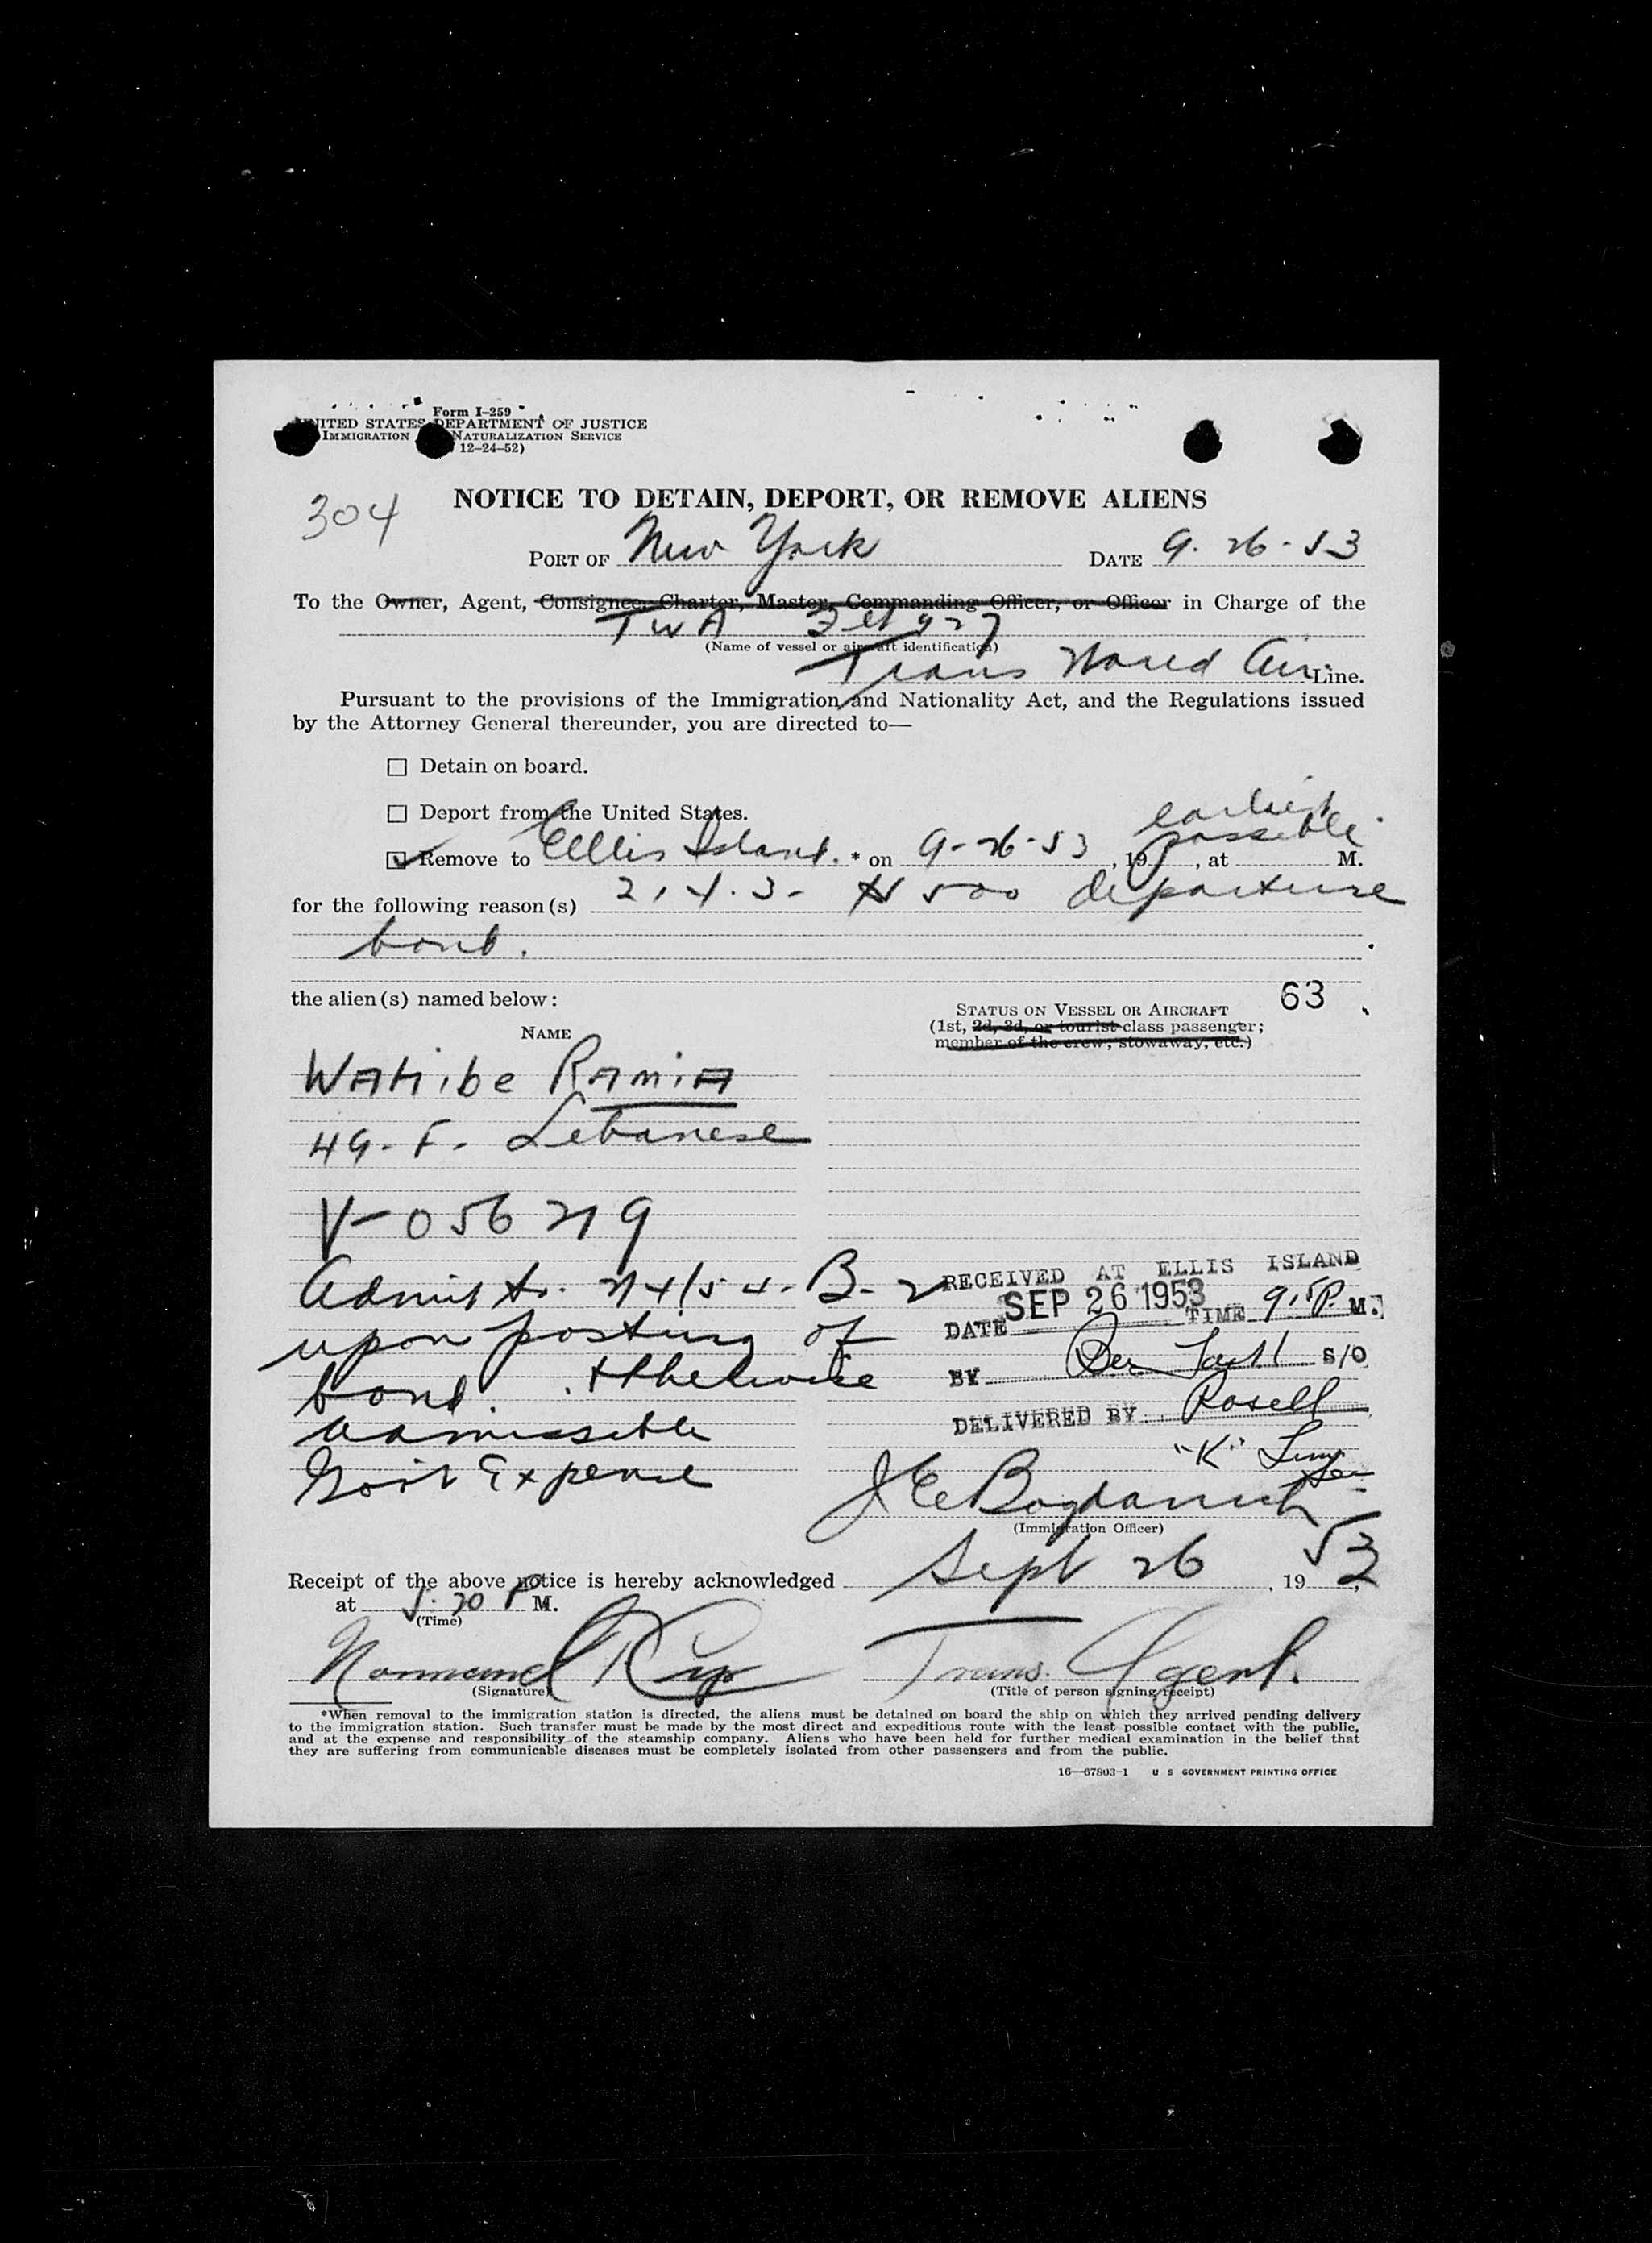 Form I-259
UNITED STATES DEPARTMENT OF JUSTICE
IMMIGRATION NATURALIZATION SERVICE
12-24-52)
304
NOTICE TO DETAIN, DEPORT, OR REMOVE ALIENS
PORT OF New York DATE 9-26-53
To the Owner, Agent, Consignee, Charter, Master, Commanding Officer, or Officer in Charge of the
TWA Flt 927
(Name of vessel or aircraft identification)
Trans World Air Line.
Pursuant to the provisions of the Immigration and Nationality Act, and the Regulations issued
by the Attorney General thereunder, you are directed to—
☐ Detain on board.
☐ Deport from the United States.
earliest possible
☑ Remove to Ellis Island. * on 9-26-53, 19 , at M.
for the following reason(s) 214.3- $500 departure
bond.
the alien(s) named below: 63
STATUS ON VESSEL OR AIRCRAFT
NAME
(1st, 2d, 3d, or tourist class passenger;
member of the crew, stowaway, etc.)
WAHibe RAMiA
49- F- Lebanese
V-056219
Admit to 2/4/54-B-2
upon posting of
bond. otherwise
admissible
Gov't Expense
RECEIVED AT ELLIS ISLAND
DATE SEP 26 1953 TIME 9.5 P. M.
BY S/O
DELIVERED BY Rosell
"K" Line
J C Bogdanich
(Immigration Officer)
Receipt of the above notice is hereby acknowledged Sept 26, 1953,
at 5:20 P M.
(Time)
Normand Trans. Agent.
(Signature) (Title of person signing receipt)
*When removal to the immigration station is directed, the aliens must be detained on board the ship on which they arrived pending delivery
to the immigration station. Such transfer must be made by the most direct and expeditious route with the least possible contact with the public,
and at the expense and responsibility of the steamship company. Aliens who have been held for further medical examination in the belief that
they are suffering from communicable diseases must be completely isolated from other passengers and from the public.
16—67803-1 U S GOVERNMENT PRINTING OFFICE